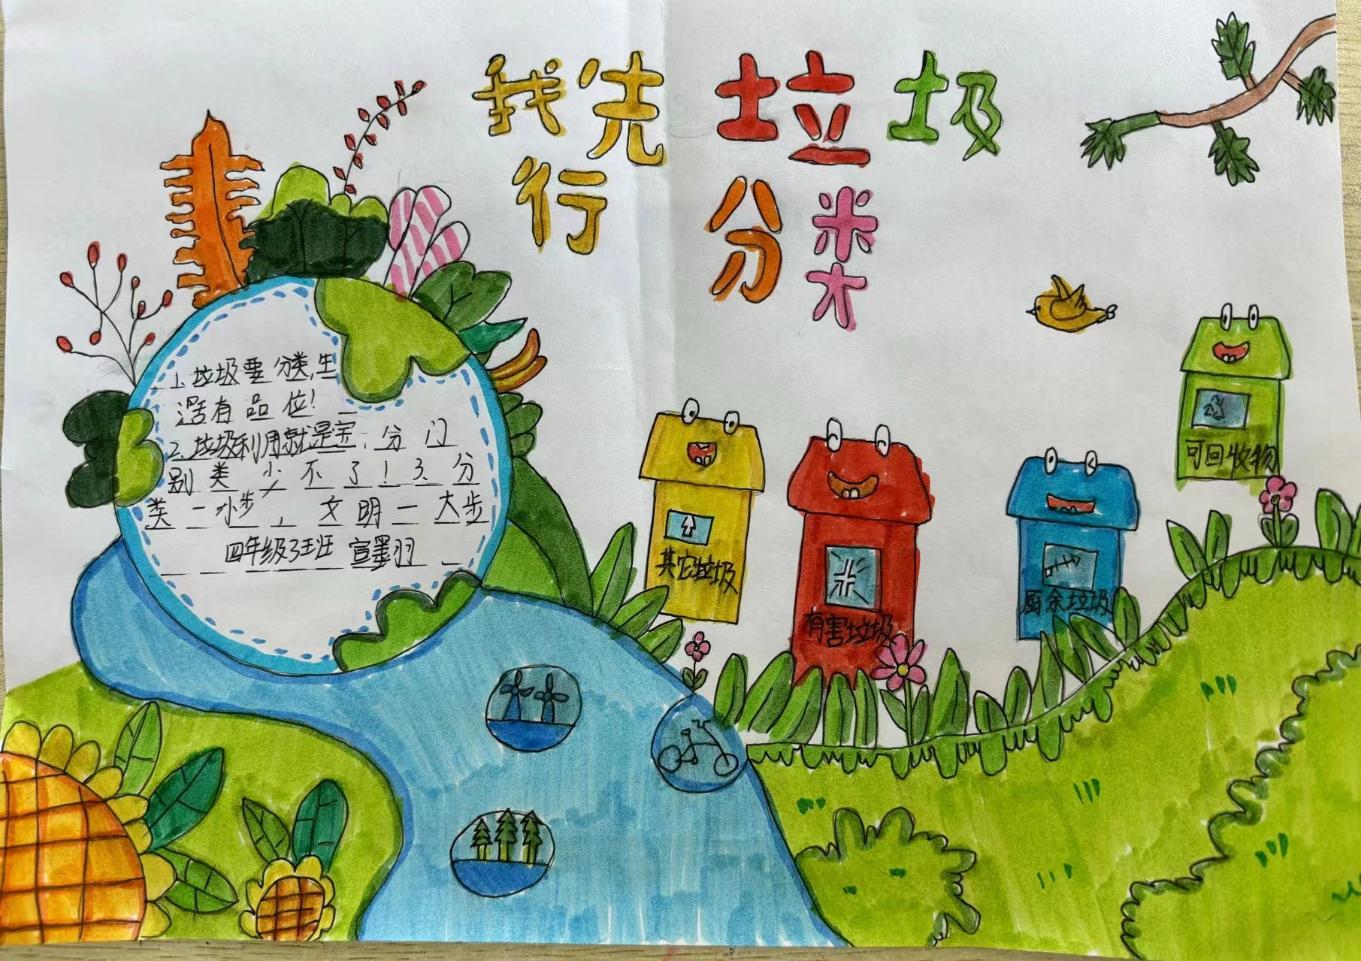 我先
行
垃圾
分类
1.垃圾要分类,生
活有品位!
2.垃圾利用就是宝,分门
别类少不了!3.分
类一小步,文明一大步
四年级3班 宣墨羽
其它垃圾
有害垃圾
厨余垃圾
可回收物